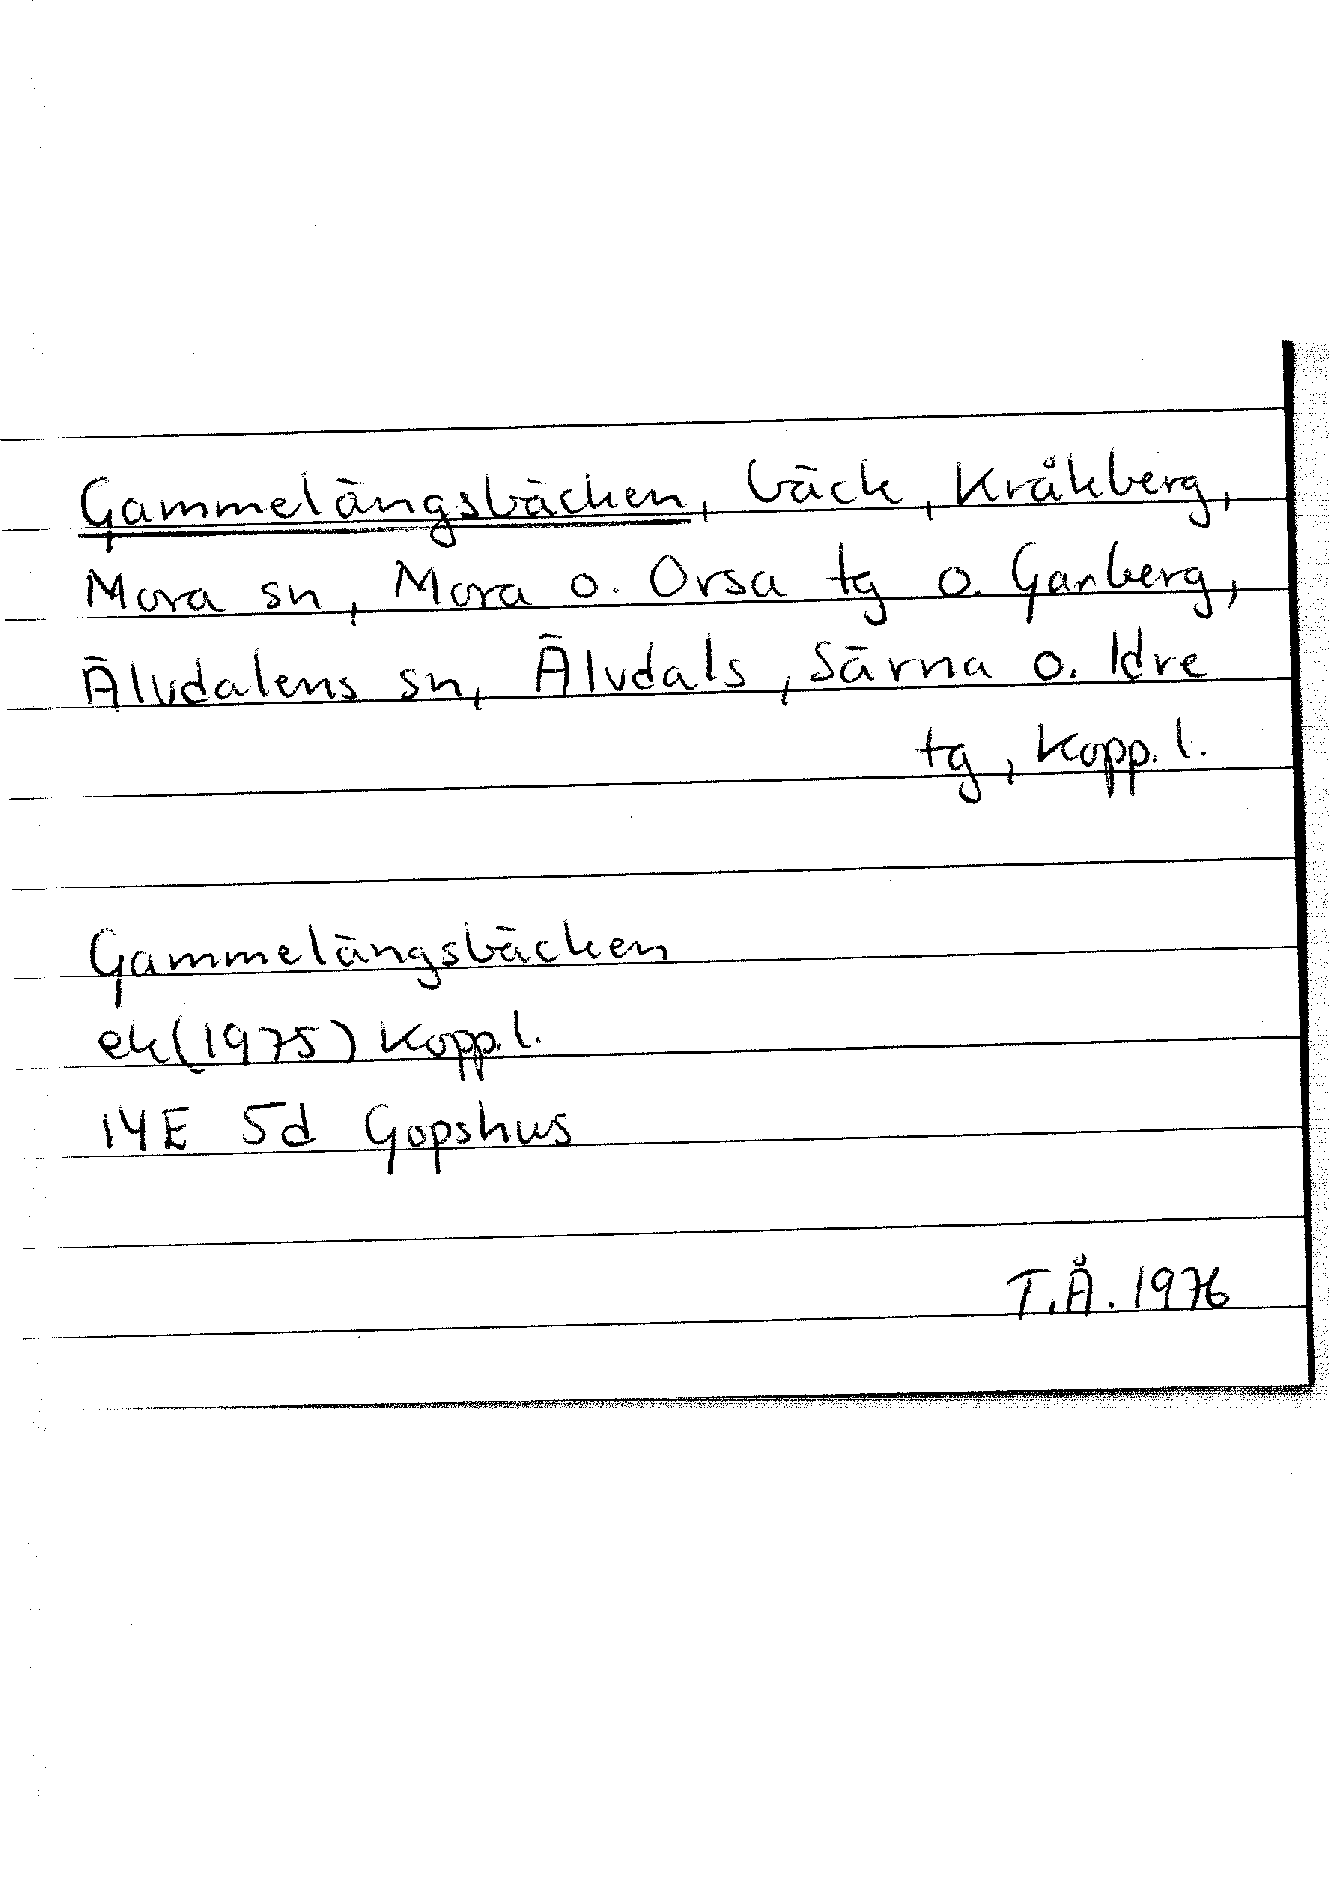 Gammelängsbäcken, bäck, Kråkberg,
Mora sn, Mora o. Orsa tg o. Garberg,
Älvdalens sn, Älvdals, Särna o. Idre
tg, Kopp. l.
Gammelängsbäcken
ek (1975) Kopp. l.
14E 5d Gopshus
T.Å. 1976